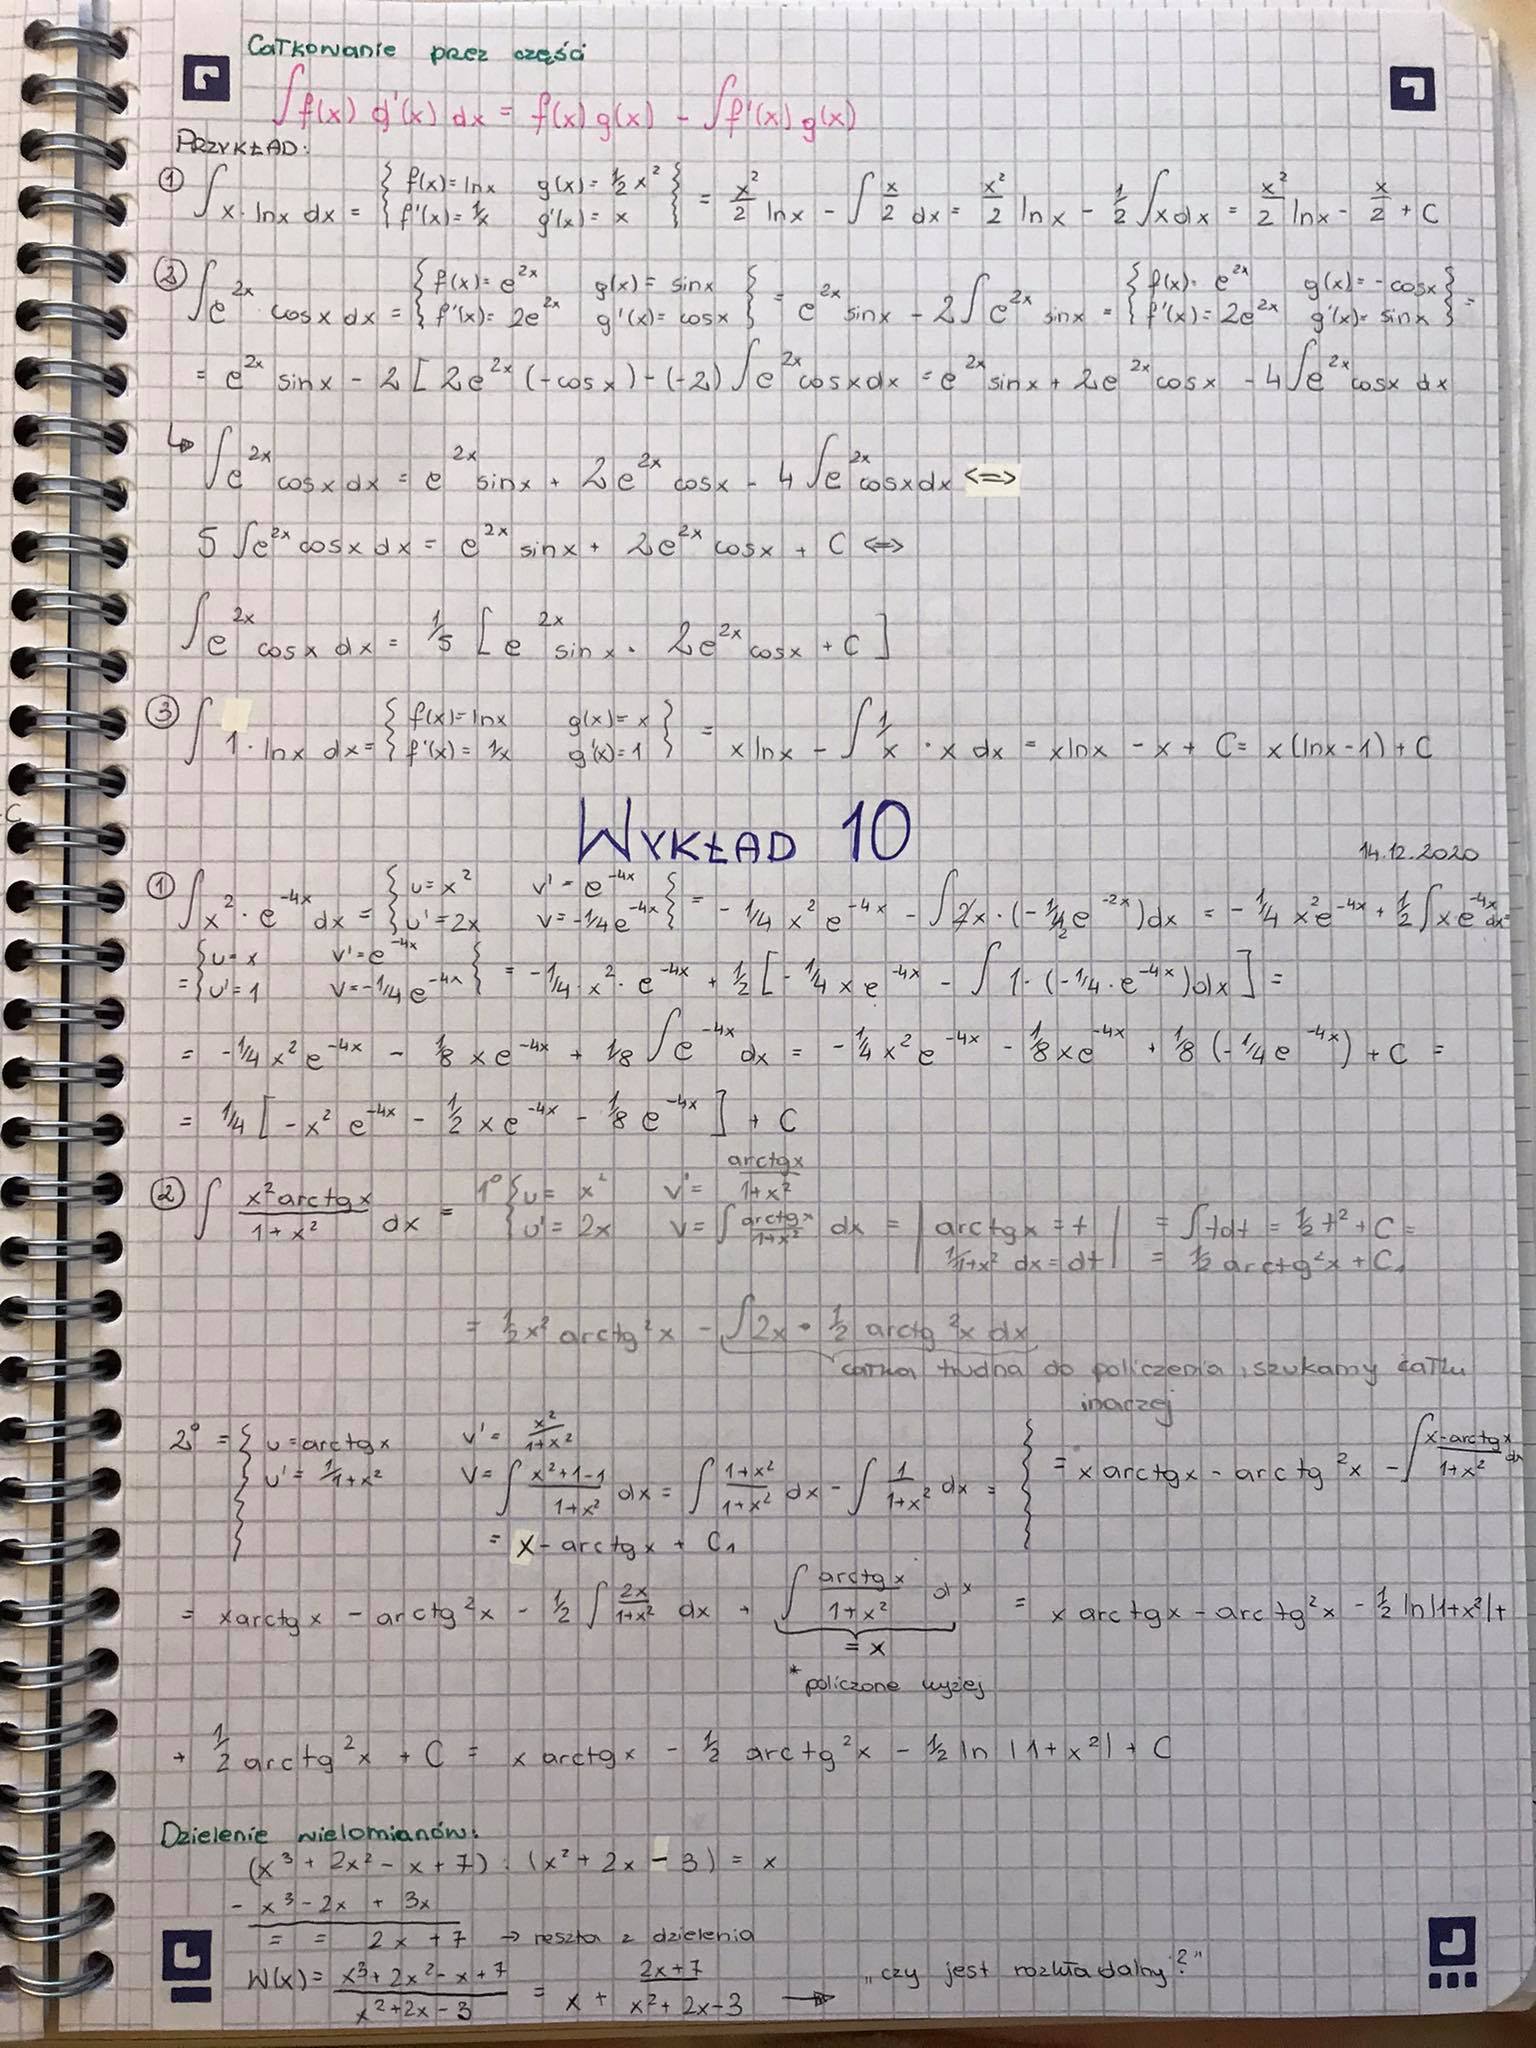 Całkowanie przez części
∫f(x) g'(x) dx = f(x) g(x) - ∫f'(x) g(x)
PRZYKŁAD:
① ∫x · lnx dx = { f(x)=lnx g(x)=1/2 x² f'(x)=1/x g'(x)=x } = x²/2 lnx - ∫x/2 dx = x²/2 lnx - 1/2 ∫x dx = x²/2 lnx - x/2 + C
② ∫e^2x cosx dx = { f(x)=e^2x g(x)=sinx f'(x)=2e^2x g'(x)=cosx } = e^2x sinx - 2∫e^2x sinx = { f(x)=e^2x g(x)=-cosx f'(x)=2e^2x g'(x)=sinx } =
= e^2x sinx - 2 [ 2e^2x (-cosx) - (-2) ∫e^2x cosx dx = e^2x sinx + 2e^2x cosx - 4∫e^2x cosx dx
↳ ∫e^2x cosx dx = e^2x sinx + 2e^2x cosx - 4∫e^2x cosx dx <=>
5 ∫e^2x cosx dx = e^2x sinx + 2e^2x cosx + C <=>
∫e^2x cosx dx = 1/5 [ e^2x sinx · 2e^2x cosx + C ]
③ ∫1 · lnx dx = { f(x)=lnx g(x)=x f'(x)=1/x g'(x)=1 } = x lnx - ∫1/x · x dx = x lnx - x + C = x(lnx-1) + C
WYKŁAD 10
14.12.2020
① ∫x² · e^-4x dx = { u=x² v'=e^-4x u'=2x v=-1/4 e^-4x } = -1/4 x² e^-4x - ∫2x · (-1/4 2 e^-2x) dx = -1/4 x² e^-4x + 1/2 ∫x e^-4x dx =
= { u=x v'=e^-4x u'=1 v=-1/4 e^-4x } = -1/4 · x² · e^-4x + 1/2 [ -1/4 x e^-4x - ∫1 · (-1/4 · e^-4x) dx ] =
= -1/4 x² e^-4x - 1/8 x e^-4x + 1/8 ∫e^-4x dx = -1/4 x² e^-4x - 1/8 x e^-4x + 1/8 (-1/4 e^-4x) + C =
= 1/4 [ -x² e^-4x - 1/2 x e^-4x - 1/8 e^-4x ] + C
② ∫ x² arctgx / 1+x² dx = 1° { u=x² v'= arctgx / 1+x²
u'=2x v=∫ arctgx / 1+x² dx = | arctgx = t 1/1+x² dx = dt | = ∫tdt = 1/2 t² + C =
= 1/2 arctg²x + C₁
= 1/2 x² arctg²x - ∫2x · 1/2 arctg²x dx
całka trudna do policzenia, szukamy całki
inaczej
2° = { u=arctgx v'= x²/1+x²
u'=1/1+x² v=∫ x²+1-1 / 1+x² dx = ∫ 1+x² / 1+x² dx - ∫ 1 / 1+x² dx = } = x arctgx - arctg²x - ∫ x-arctgx / 1+x² dx
= x - arctgx + C₁
= x arctgx - arctg²x - 1/2 ∫ 2x / 1+x² dx + ∫ arctgx / 1+x² dx = x arctgx - arctg²x - 1/2 ln|1+x²| +
= x
* policzone wyżej
+ 1/2 arctg²x + C = x arctgx - 1/2 arctg²x - 1/2 ln |1+x²| + C
Dzielenie wielomianów:
(x³ + 2x² - x + 7) : (x² + 2x - 3) = x
- x³ - 2x + 3x
= = 2x + 7 → reszta z dzielenia
W(x) = x³+2x²-x+7 / x²+2x-3 = x + 2x+7 / x²+2x-3 → „czy jest rozkładalny?"